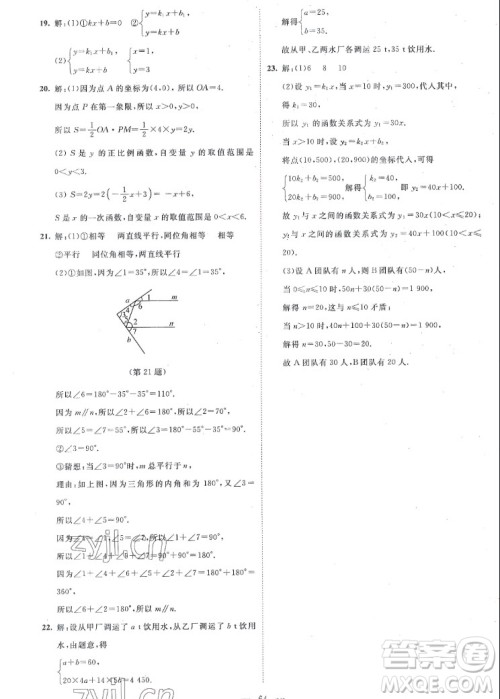 19. 解:(1)①kx+b=0 ②{y=kx+b, y=k₁x+b₁
(2){y=k₁x+b₁, y=kx+b {x=1, y=3.
20. 解:(1)因为点 A 的坐标为(4,0),所以 OA=4.
因为点 P 在第一象限,所以 PM=y.
所以 S=1/2 OA·PM=1/2×4×y=2y.
(2) S 是 y 的正比例函数,自变量 y 的取值范围是 0<y<3.
(3) S=2y=2(-1/2x+3)=-x+6.
S 是 x 的一次函数,自变量 x 的取值范围是 0<x<6.
21. 解:(1)①相等 两直线平行,同位角相等 相等
②平行 同位角相等,两直线平行
(2)①如图,所以∠4=∠1=35°.
(第 21 题)
所以∠6=180°-35°-35°=110°.
因为 m∥n,所以∠2+∠6=180°.
所以∠2=70°.
所以∠5=∠7=55°,所以∠3=90°.
②∠3=90°.
③猜想:当∠3=90°时,m 总平行于 n.
理由:因为三角形的内角和为 180°,
所以∠4+∠5=90°.
因为∠4=∠1,∠5=∠7,所以∠1+∠7=90°.
所以∠1+∠4+∠5+∠7=90°+90°=180°.
因为∠1+∠4+∠6+∠5+∠2+∠7=180°+180°=360°.
所以∠6+∠2=180°,所以 m∥n.
22. 解:设从甲厂调运了 a t 饮用水,从乙厂调运了 b t 饮用水,由题意,得
{a+b=60, 20×4a+14×15b=4 450.
解得{a=25, b=35.
故从甲、乙两水厂各调运 25 t,35 t 饮用水.
23. 解:(1)6 8 10
(2)设 y₁=k₁x,当 x=10 时,y₁=300,代入其中得,得 k₁=30.
所以 y₁ 的函数关系式为 y₁=30x.
当 x>10 时,设 y₂=k₂x+b₂,
将点(10,500),(20,900)的坐标代入,得
{10k₂+b₂=500, 20k₂+b₂=900, 解得{k₂=40, b₂=100.
所以 y₂=40x+100.
故 y₁ 与 x 之间的函数关系式为 y₁=30x(0≤x≤20).
当 x>10 时,y₂ 的函数关系式为 y₂=40x+100(10<x≤20).
(3)设 A 团队有 n 人,则 B 团队有(50-n)人.
当 0≤n≤10 时,50n+30(50-n)=1 860.
解得 n=18,这与 n≤10 矛盾.
当 n>10 时,40n+100+30(50-n)=1 860.
解得 n=30,50-30=20.
故 A 团队有 30 人,B 团队有 20 人.
54
zyjl.cn
zyjl.cn
作业精灵